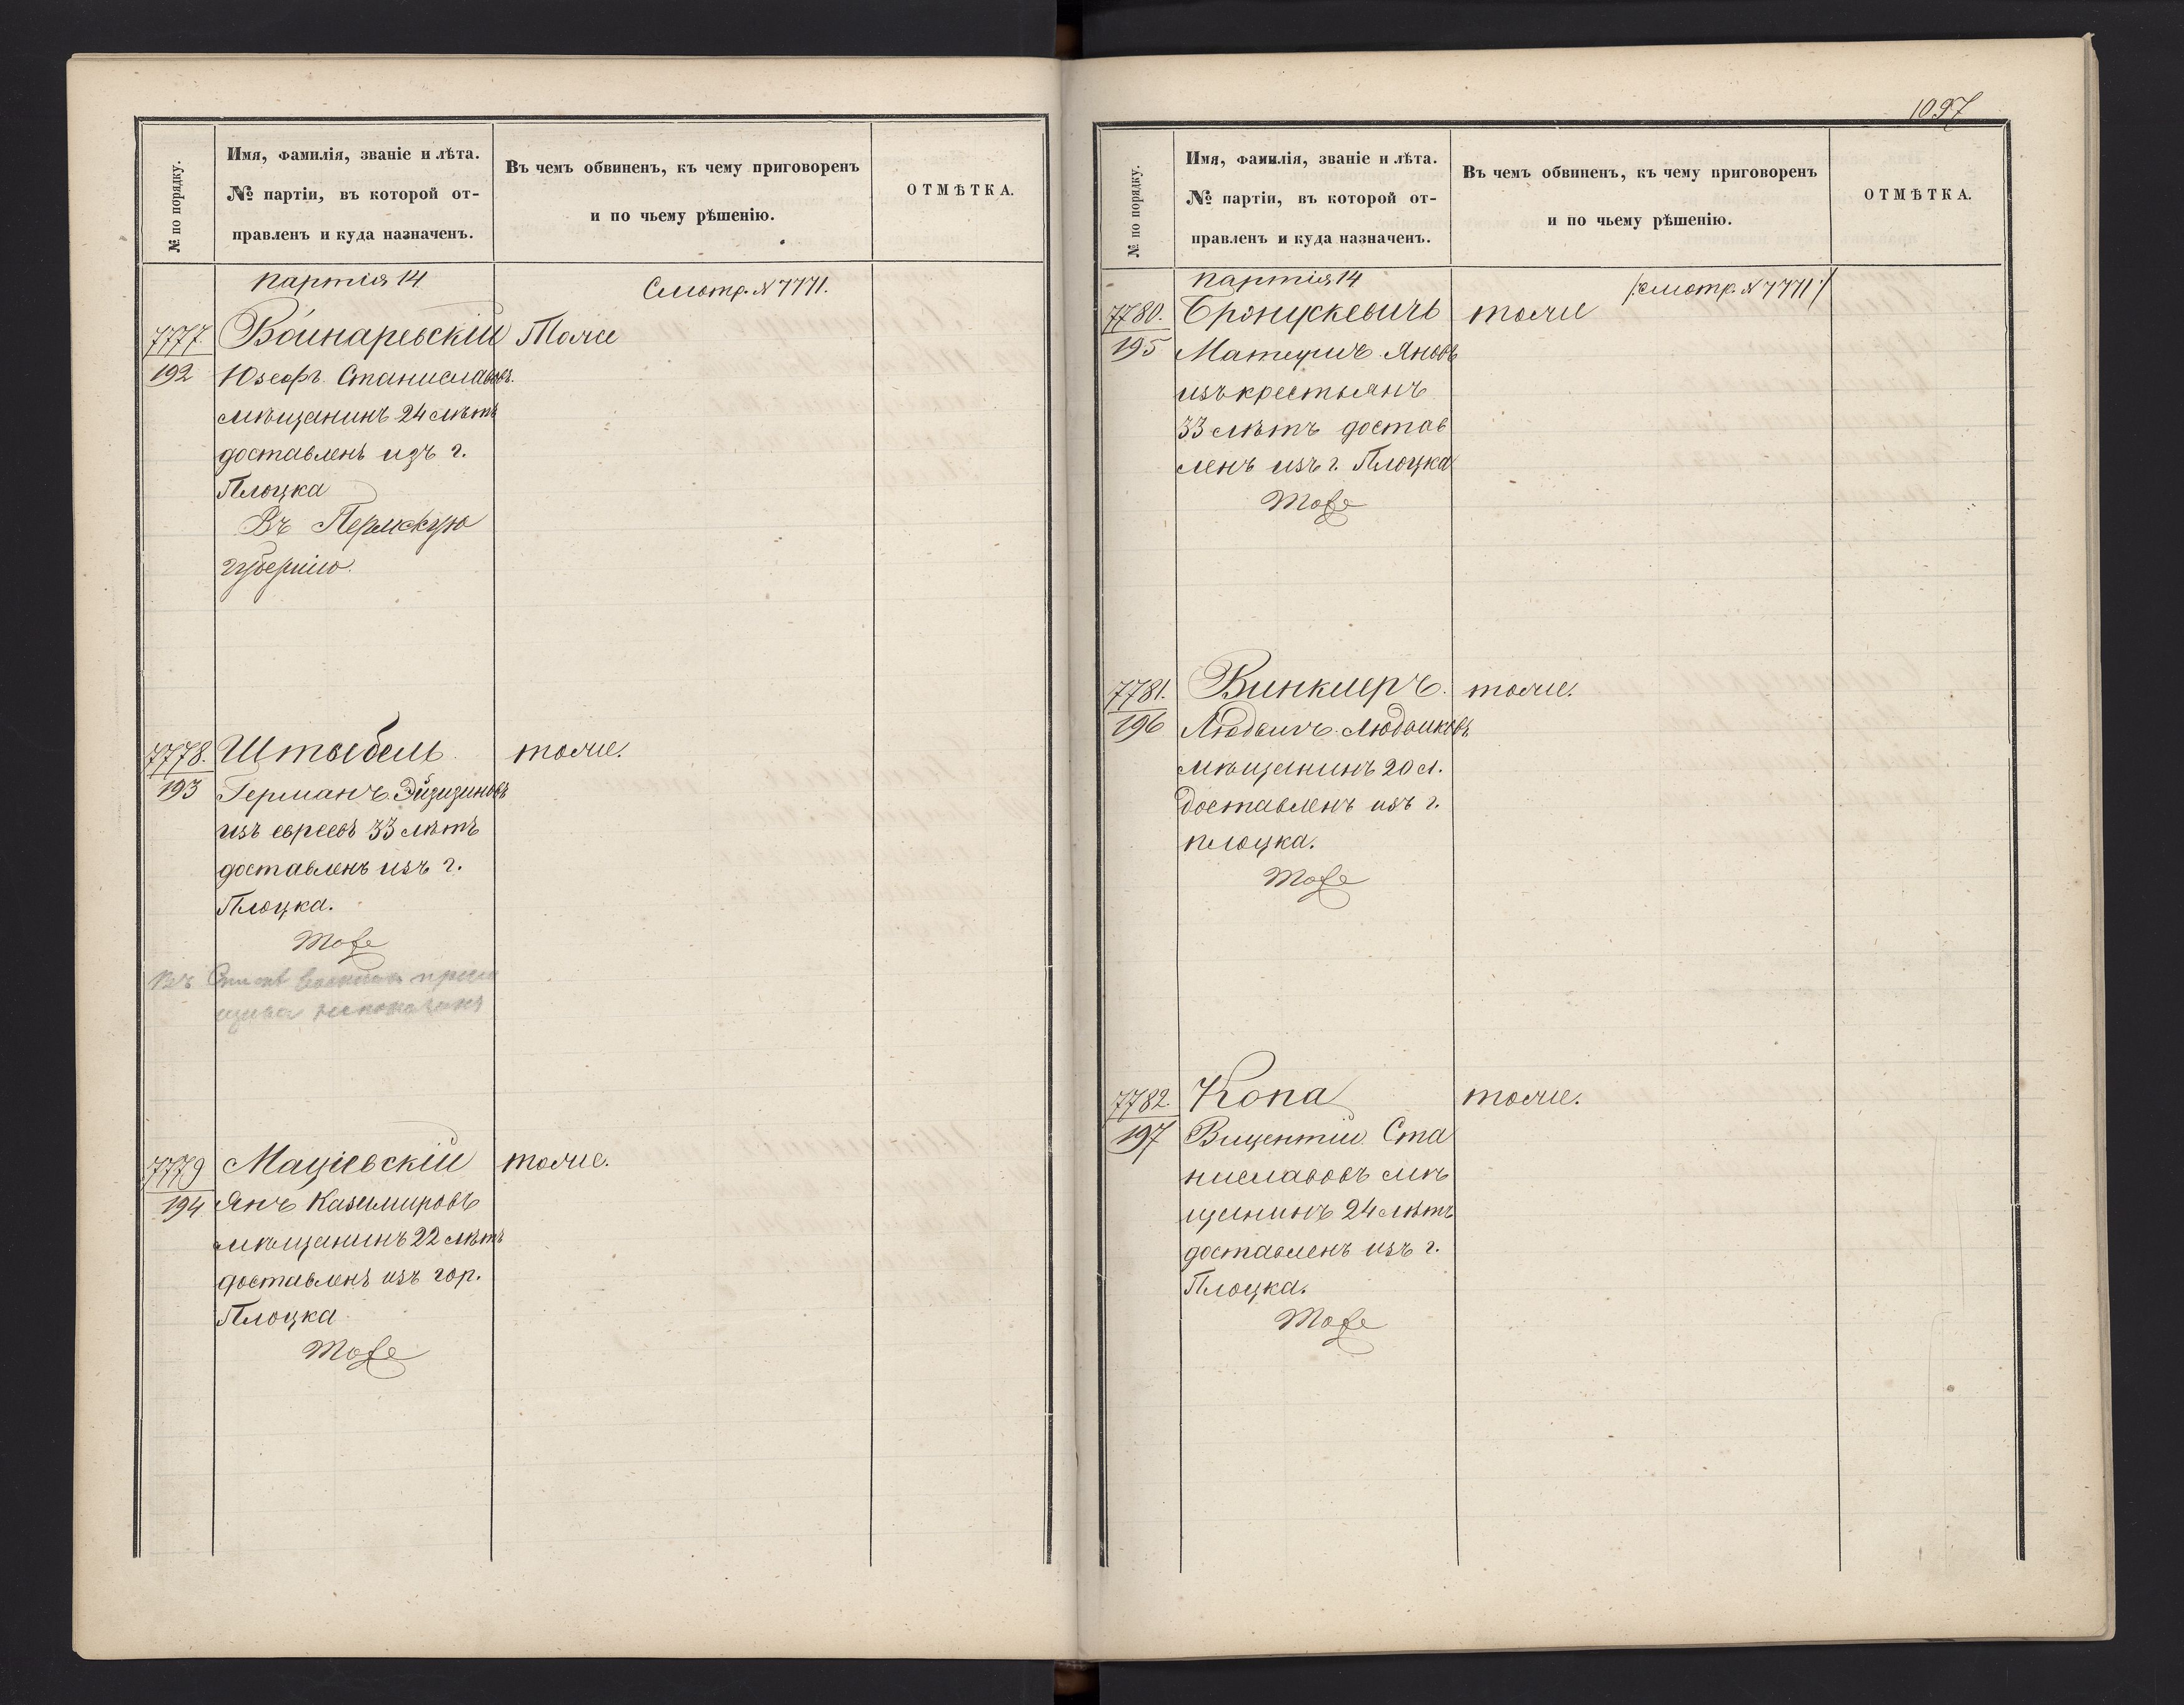 № по порядку.
Имя, фамилія, званіе и лѣта.
№ партіи, въ которой от-
правленъ и куда назначенъ.
Въ чемъ обвиненъ, къ чему приговоренъ
и по чьему рѣшенію.
ОТМѢТКА.
партія 14
Смотр. № 7771.
7777.
192
Войнаревскій
Юзефъ Станиславовъ.
мѣщанинъ 24 лѣтъ
доставленъ изъ г.
Плоцка
Въ Пермскую
губернію.
Тоже
7778.
193
Штыбель
Германъ
изъ евреевъ 33 лѣтъ
доставленъ изъ г.
Плоцка.
Тоже
тоже.
7779
194
Маціевскій
Янъ Казимировъ
мѣщанинъ 22 лѣтъ
доставленъ изъ гор.
Плоцка
Тоже
тоже.
1097
№ по порядку.
Имя, фамилія, званіе и лѣта.
№ партіи, въ которой от-
правленъ и куда назначенъ.
Въ чемъ обвиненъ, къ чему приговоренъ
и по чьему рѣшенію.
ОТМѢТКА.
партія 14
/:смотр. № 7771:/
7780.
195
Бронускевичъ
Матеушъ Яновъ
изъ крестьянъ
33 лѣтъ достав
ленъ изъ г. Плоцка
Тоже
тоже
7781.
196
Винклеръ.
Людвигъ Людвиковъ
мѣщанинъ 20 л.
доставленъ изъ г.
плоцка.
Тоже
тоже.
7782.
197
Копа
Вицентій Ста
ниславовъ мѣ
щанинъ 24 лѣтъ
доставленъ изъ г.
Плоцка.
Тоже
тоже.